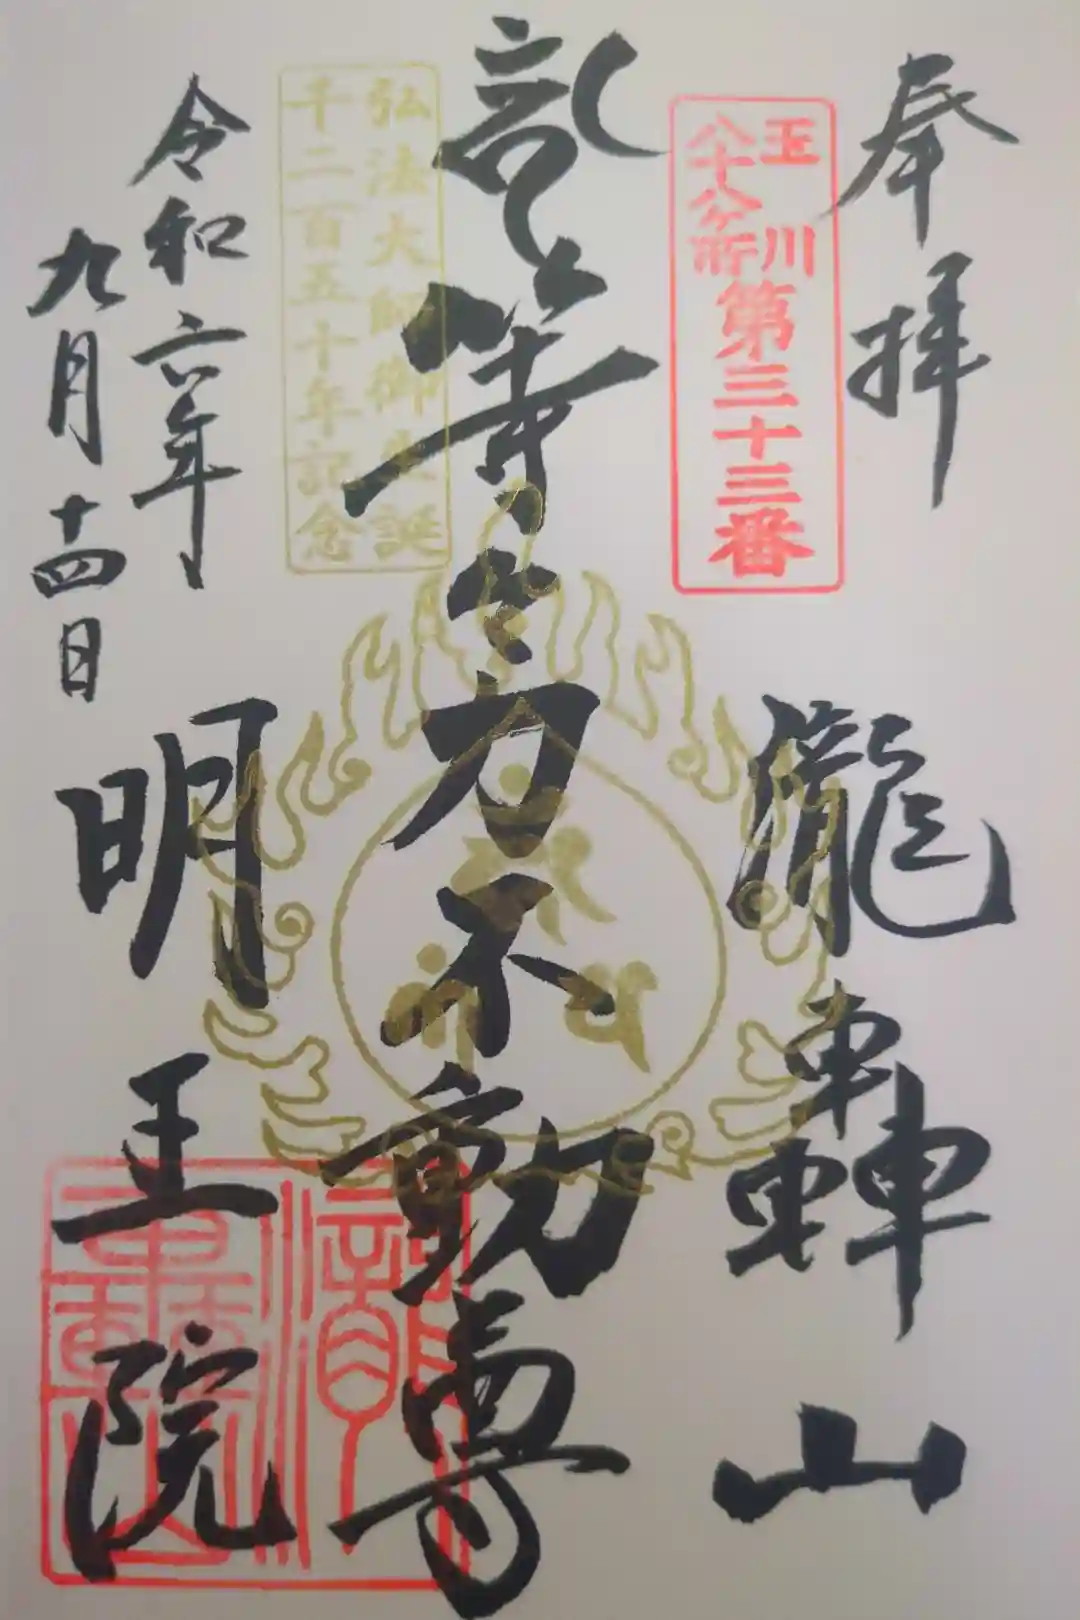 奉拝
瀧轟山
玉川八十八ヶ所第三十三番
等々力不動尊
弘法大師御生誕
千二百五十年記念
令和六年
九月十四日
明王院